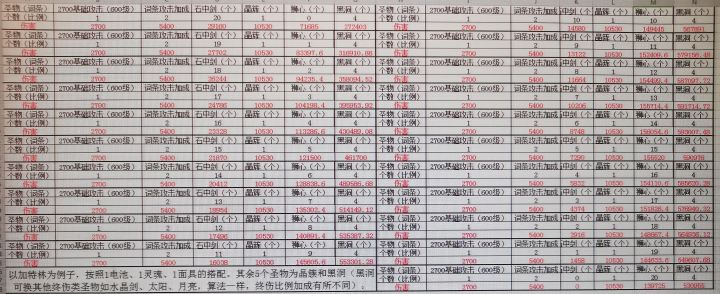 圣物（词条） 2700基础攻击（600级） 词条攻击加成 石中剑（个） 晶簇（个） 狮心（个） 黑洞（个）
个数（比例） 1 2 20 1 0 4
伤害 2700 5400 29160 10530 71685 272403
圣物（词条） 2700基础攻击（600级） 词条攻击加成 石中剑（个） 晶簇（个） 狮心（个） 黑洞（个）
个数（比例） 1 2 19 1 1 4
伤害 2700 5400 27702 10530 83397.6 316910.88
圣物（词条） 2700基础攻击（600级） 词条攻击加成 石中剑（个） 晶簇（个） 狮心（个） 黑洞（个）
个数（比例） 1 2 18 1 2 4
伤害 2700 5400 26244 10530 94235.4 358094.52
圣物（词条） 2700基础攻击（600级） 词条攻击加成 石中剑（个） 晶簇（个） 狮心（个） 黑洞（个）
个数（比例） 1 2 17 1 3 4
伤害 2700 5400 24786 10530 104198.4 395953.92
圣物（词条） 2700基础攻击（600级） 词条攻击加成 石中剑（个） 晶簇（个） 狮心（个） 黑洞（个）
个数（比例） 1 2 16 1 4 4
伤害 2700 5400 23328 10530 113286.6 430489.08
圣物（词条） 2700基础攻击（600级） 词条攻击加成 石中剑（个） 晶簇（个） 狮心（个） 黑洞（个）
个数（比例） 1 2 15 1 5 4
伤害 2700 5400 21870 10530 121500 461700
圣物（词条） 2700基础攻击（600级） 词条攻击加成 石中剑（个） 晶簇（个） 狮心（个） 黑洞（个）
个数（比例） 1 2 14 1 6 4
伤害 2700 5400 20412 10530 128838.6 489586.68
圣物（词条） 2700基础攻击（600级） 词条攻击加成 石中剑（个） 晶簇（个） 狮心（个） 黑洞（个）
个数（比例） 1 2 13 1 7 4
伤害 2700 5400 18954 10530 135302.4 514149.12
圣物（词条） 2700基础攻击（600级） 词条攻击加成 石中剑（个） 晶簇（个） 狮心（个） 黑洞（个）
个数（比例） 1 2 12 1 8 4
伤害 2700 5400 17496 10530 140891.4 535387.32
圣物（词条） 2700基础攻击（600级） 词条攻击加成 石中剑（个） 晶簇（个） 狮心（个） 黑洞（个）
个数（比例） 1 2 11 1 9 4
伤害 2700 5400 16038 10530 145605.6 553301.28
以加特林为例子，按照1电池、1灵魂、1面具的搭配，其余5个圣物为晶簇和黑洞（黑洞
可换其他终伤类圣物如水晶剑、太阳、月亮，算法一样，终伤比例加成有所不同）。
圣物（词条） 2700基础攻击（600级） 词条攻击加成 石中剑（个） 晶簇（个） 狮心（个） 黑洞（个）
个数（比例） 1 2 10 1 10 4
伤害 2700 5400 14580 10530 149445 567891
圣物（词条） 2700基础攻击（600级） 词条攻击加成 石中剑（个） 晶簇（个） 狮心（个） 黑洞（个）
个数（比例） 1 2 9 1 11 4
伤害 2700 5400 13122 10530 152409.6 579156.48
圣物（词条） 2700基础攻击（600级） 词条攻击加成 石中剑（个） 晶簇（个） 狮心（个） 黑洞（个）
个数（比例） 1 2 8 1 12 4
伤害 2700 5400 11664 10530 154499.4 587097.72
圣物（词条） 2700基础攻击（600级） 词条攻击加成 石中剑（个） 晶簇（个） 狮心（个） 黑洞（个）
个数（比例） 1 2 7 1 13 4
伤害 2700 5400 10206 10530 155714.4 591714.72
圣物（词条） 2700基础攻击（600级） 词条攻击加成 石中剑（个） 晶簇（个） 狮心（个） 黑洞（个）
个数（比例） 1 2 6 1 14 4
伤害 2700 5400 8748 10530 156054.6 593007.48
圣物（词条） 2700基础攻击（600级） 词条攻击加成 石中剑（个） 晶簇（个） 狮心（个） 黑洞（个）
个数（比例） 1 2 5 1 15 4
伤害 2700 5400 7290 10530 155520 590976
圣物（词条） 2700基础攻击（600级） 词条攻击加成 石中剑（个） 晶簇（个） 狮心（个） 黑洞（个）
个数（比例） 1 2 4 1 16 4
伤害 2700 5400 5832 10530 154110.6 585620.28
圣物（词条） 2700基础攻击（600级） 词条攻击加成 石中剑（个） 晶簇（个） 狮心（个） 黑洞（个）
个数（比例） 1 2 3 1 17 4
伤害 2700 5400 4374 10530 151826.4 576940.32
圣物（词条） 2700基础攻击（600级） 词条攻击加成 石中剑（个） 晶簇（个） 狮心（个） 黑洞（个）
个数（比例） 1 2 2 1 18 4
伤害 2700 5400 2916 10530 148667.4 564936.12
圣物（词条） 2700基础攻击（600级） 词条攻击加成 石中剑（个） 晶簇（个） 狮心（个） 黑洞（个）
个数（比例） 1 2 1 1 19 4
伤害 2700 5400 1458 10530 144633.6 549607.68
圣物（词条） 2700基础攻击（600级） 词条攻击加成 石中剑（个） 晶簇（个） 狮心（个） 黑洞（个）
个数（比例） 1 2 0 1 20 4
伤害 2700 5400 0 10530 139725 530955